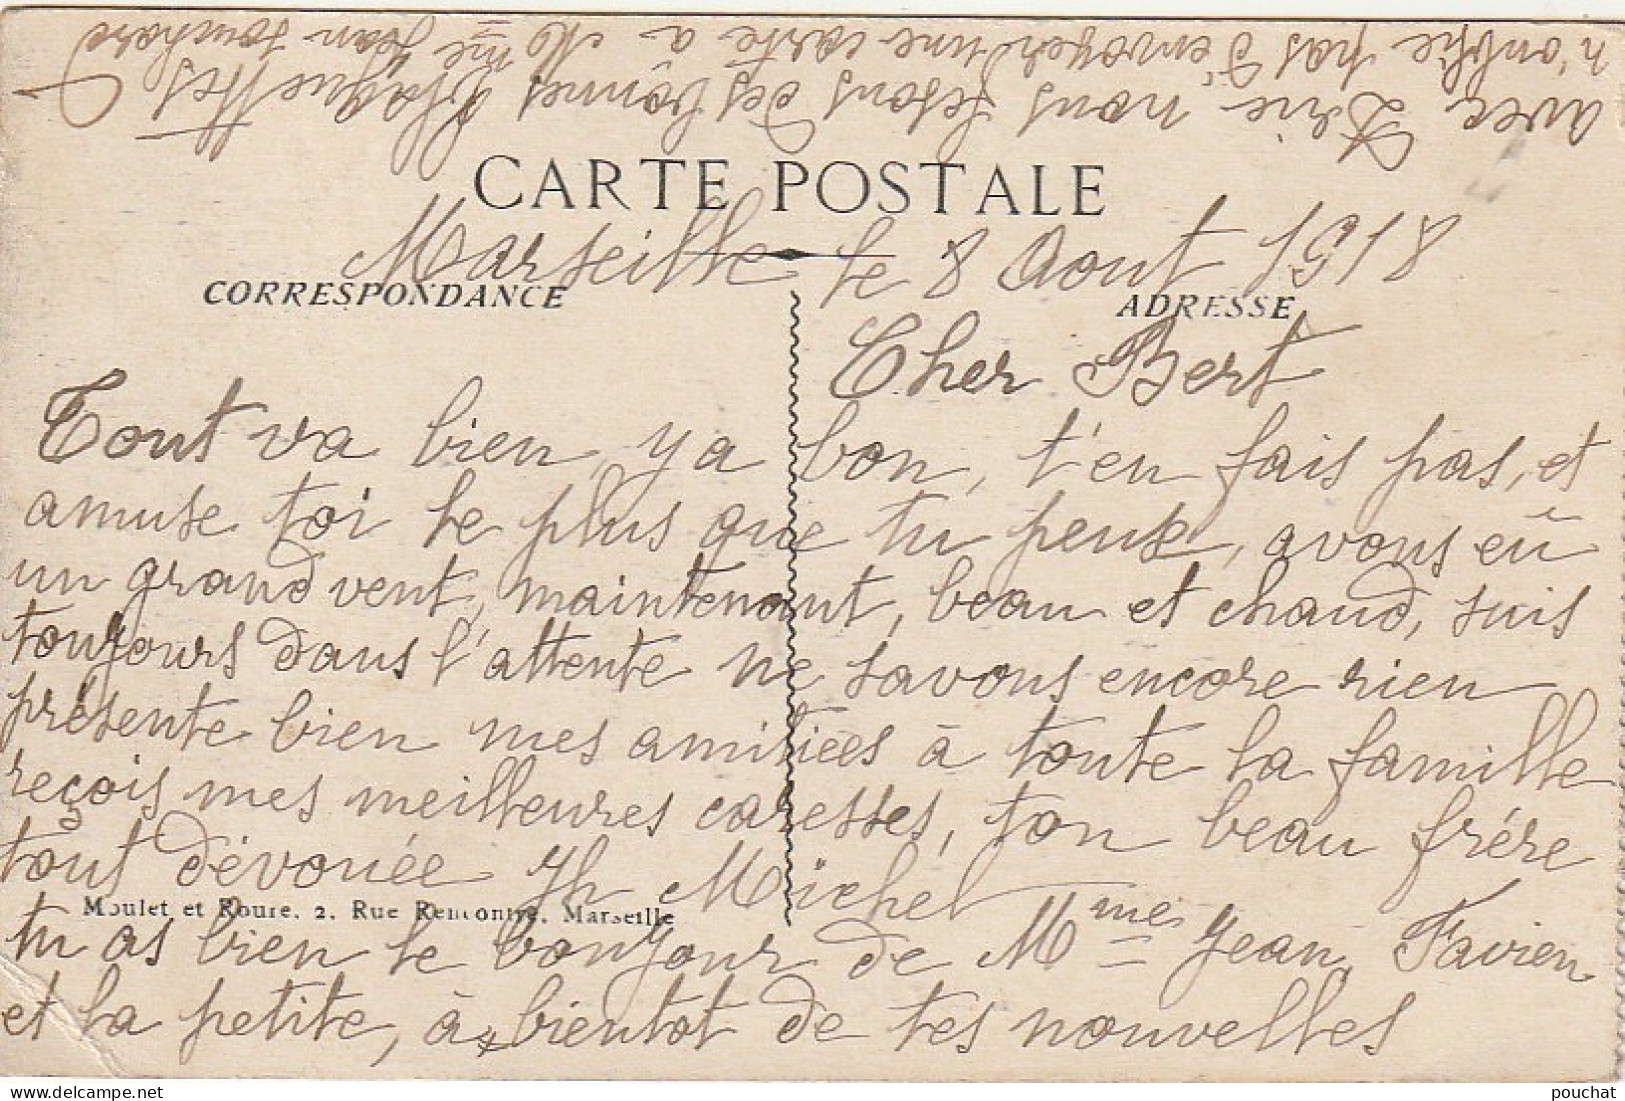 CARTE POSTALE
Marseille le 8 Aout 1918
CORRESPONDANCE
ADRESSE
Cher Bert
Tout va bien, ya bon, t'en fais pas, et
amuse toi le plus que tu peux, avons eû
un grand vent, maintenant, beau et chaud, suis
toujours dans l'attente ne savons encore rien
présente bien mes amitiées à toute la famille
reçois mes meilleures caresses, ton beau frére
tout dévouée Th Michel
Moulet et Roure, 2, Rue Rencontre, Marseille
tu as bien le bonjour de Mme Jean, Favien
et la petite, à bientot de tes nouvelles
avec nous fesons des bonnes
n'oublie pas d'envoyer une carte a Mme Jean
pouchat